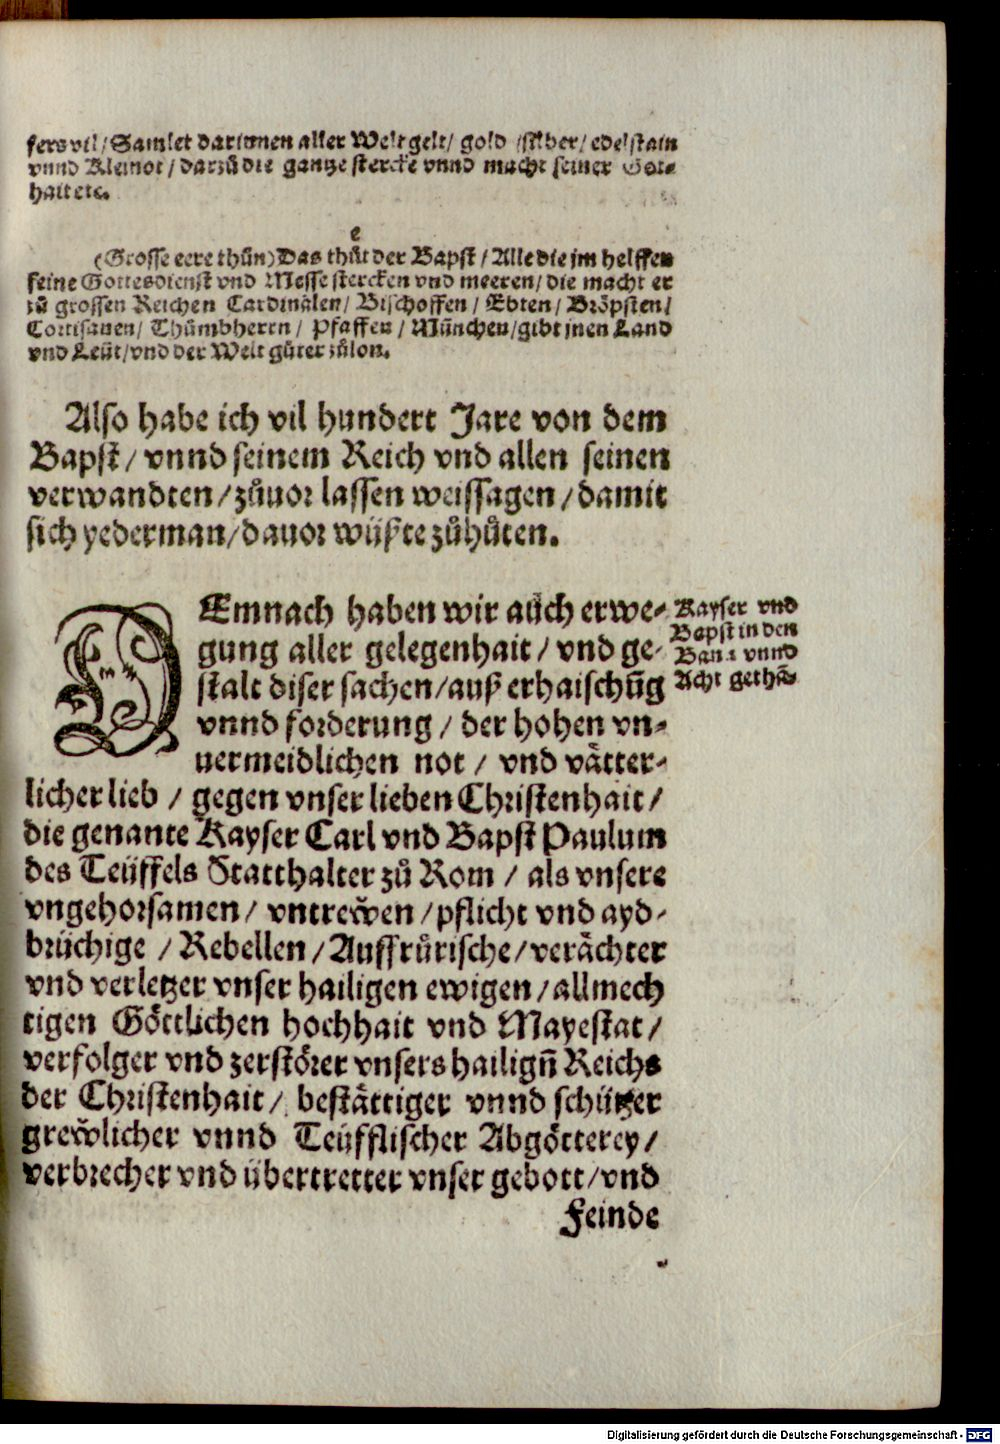 fers vil/ Samlet darinnen aller Welt gelt/ gold /silber/ edelstain
vnnd Kleinot/ darzů die gantze stercke vnnd macht seiner Got-
hait etc.
e
(Grosse eere thůn) Das thůt der Bapst/ Alle die jm helffen
seine Gottesdienst vnd Messe stercken vnd meeren/ die macht er
zů grossen Reichen Cardinälen/ Bischoffen/ Ebten/ Bröpsten/
Cortisanen/ Thůmbherrn/ Pfaffen/ München/ gibt jnen Land
vnd Leüt/ vnd der Welt güter zůlon.
Also habe ich vil hundert Jare von dem
Bapst/ vnnd seinem Reich vnd allen seinen
verwandten/ zůuor lassen weissagen/ damit
sich yederman/ dauor wüßte zůhůten.
DEmnach haben wir auch erwe-
gung aller gelegenhait/ vnd ge-
stalt diser sachen/ auß erhaischūg
vnnd forderung/ der hohen vn-
uermeidlichen not/ vnd vätter-
licher lieb/ gegen vnser lieben Christenhait/
die genante Kayser Carl vnd Bapst Paulum
des Teüffels Statthalter zů Rom/ als vnsere
vngehorsamen/ vntrewen/ pflicht vnd ayd-
brüchige/ Rebellen/ Auffrůrische/ verächter
vnd verletzer vnser hailigen ewigen/ allmech
tigen Göttlichen hochhait vnd Mayestat/
verfolger vnd zerstörer vnsers hailigñ Reichs
der Christenhait/ bestättiger vnnd schützer
grewlicher vnnd Teüfflischer Abgötterey/
verbrecher vnd übertretter vnser gebott/ vnd
Feinde
Kayser vnd
Bapst in den
Bann vnnd
Acht gethā.
Digitalisierung gefördert durch die Deutsche Forschungsgemeinschaft - DFG